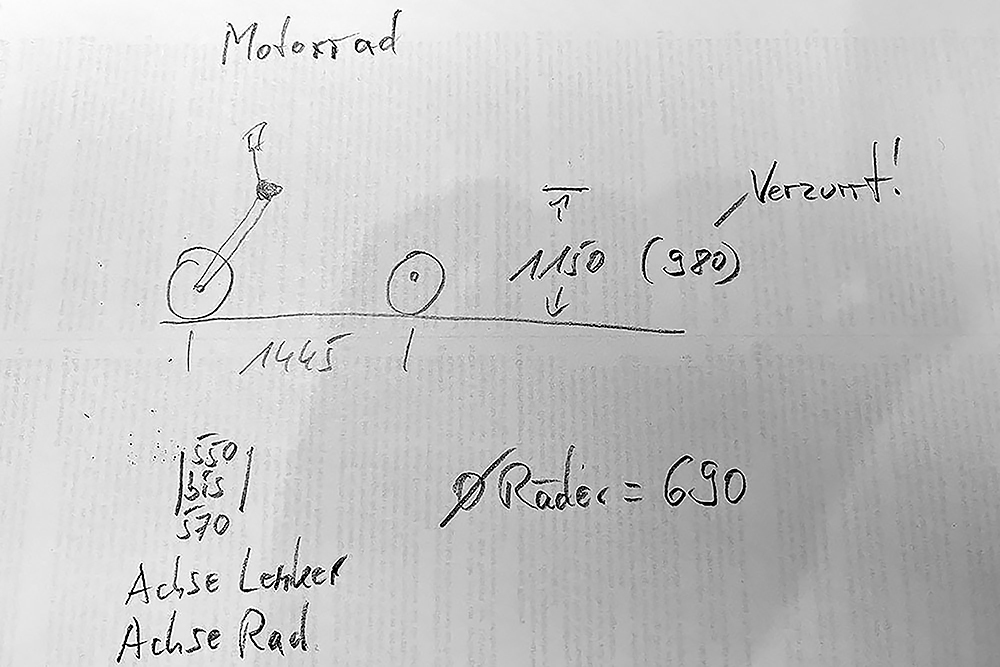 Motorrad
Verzurrt!
1150 (980)
1445
550
bis
570
Ø Räder = 690
Achse Lenker
Achse Rad